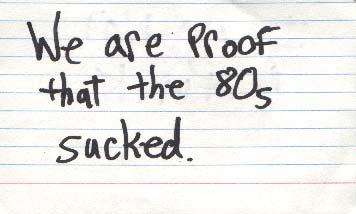 We are Proof
that the 80s
sucked.